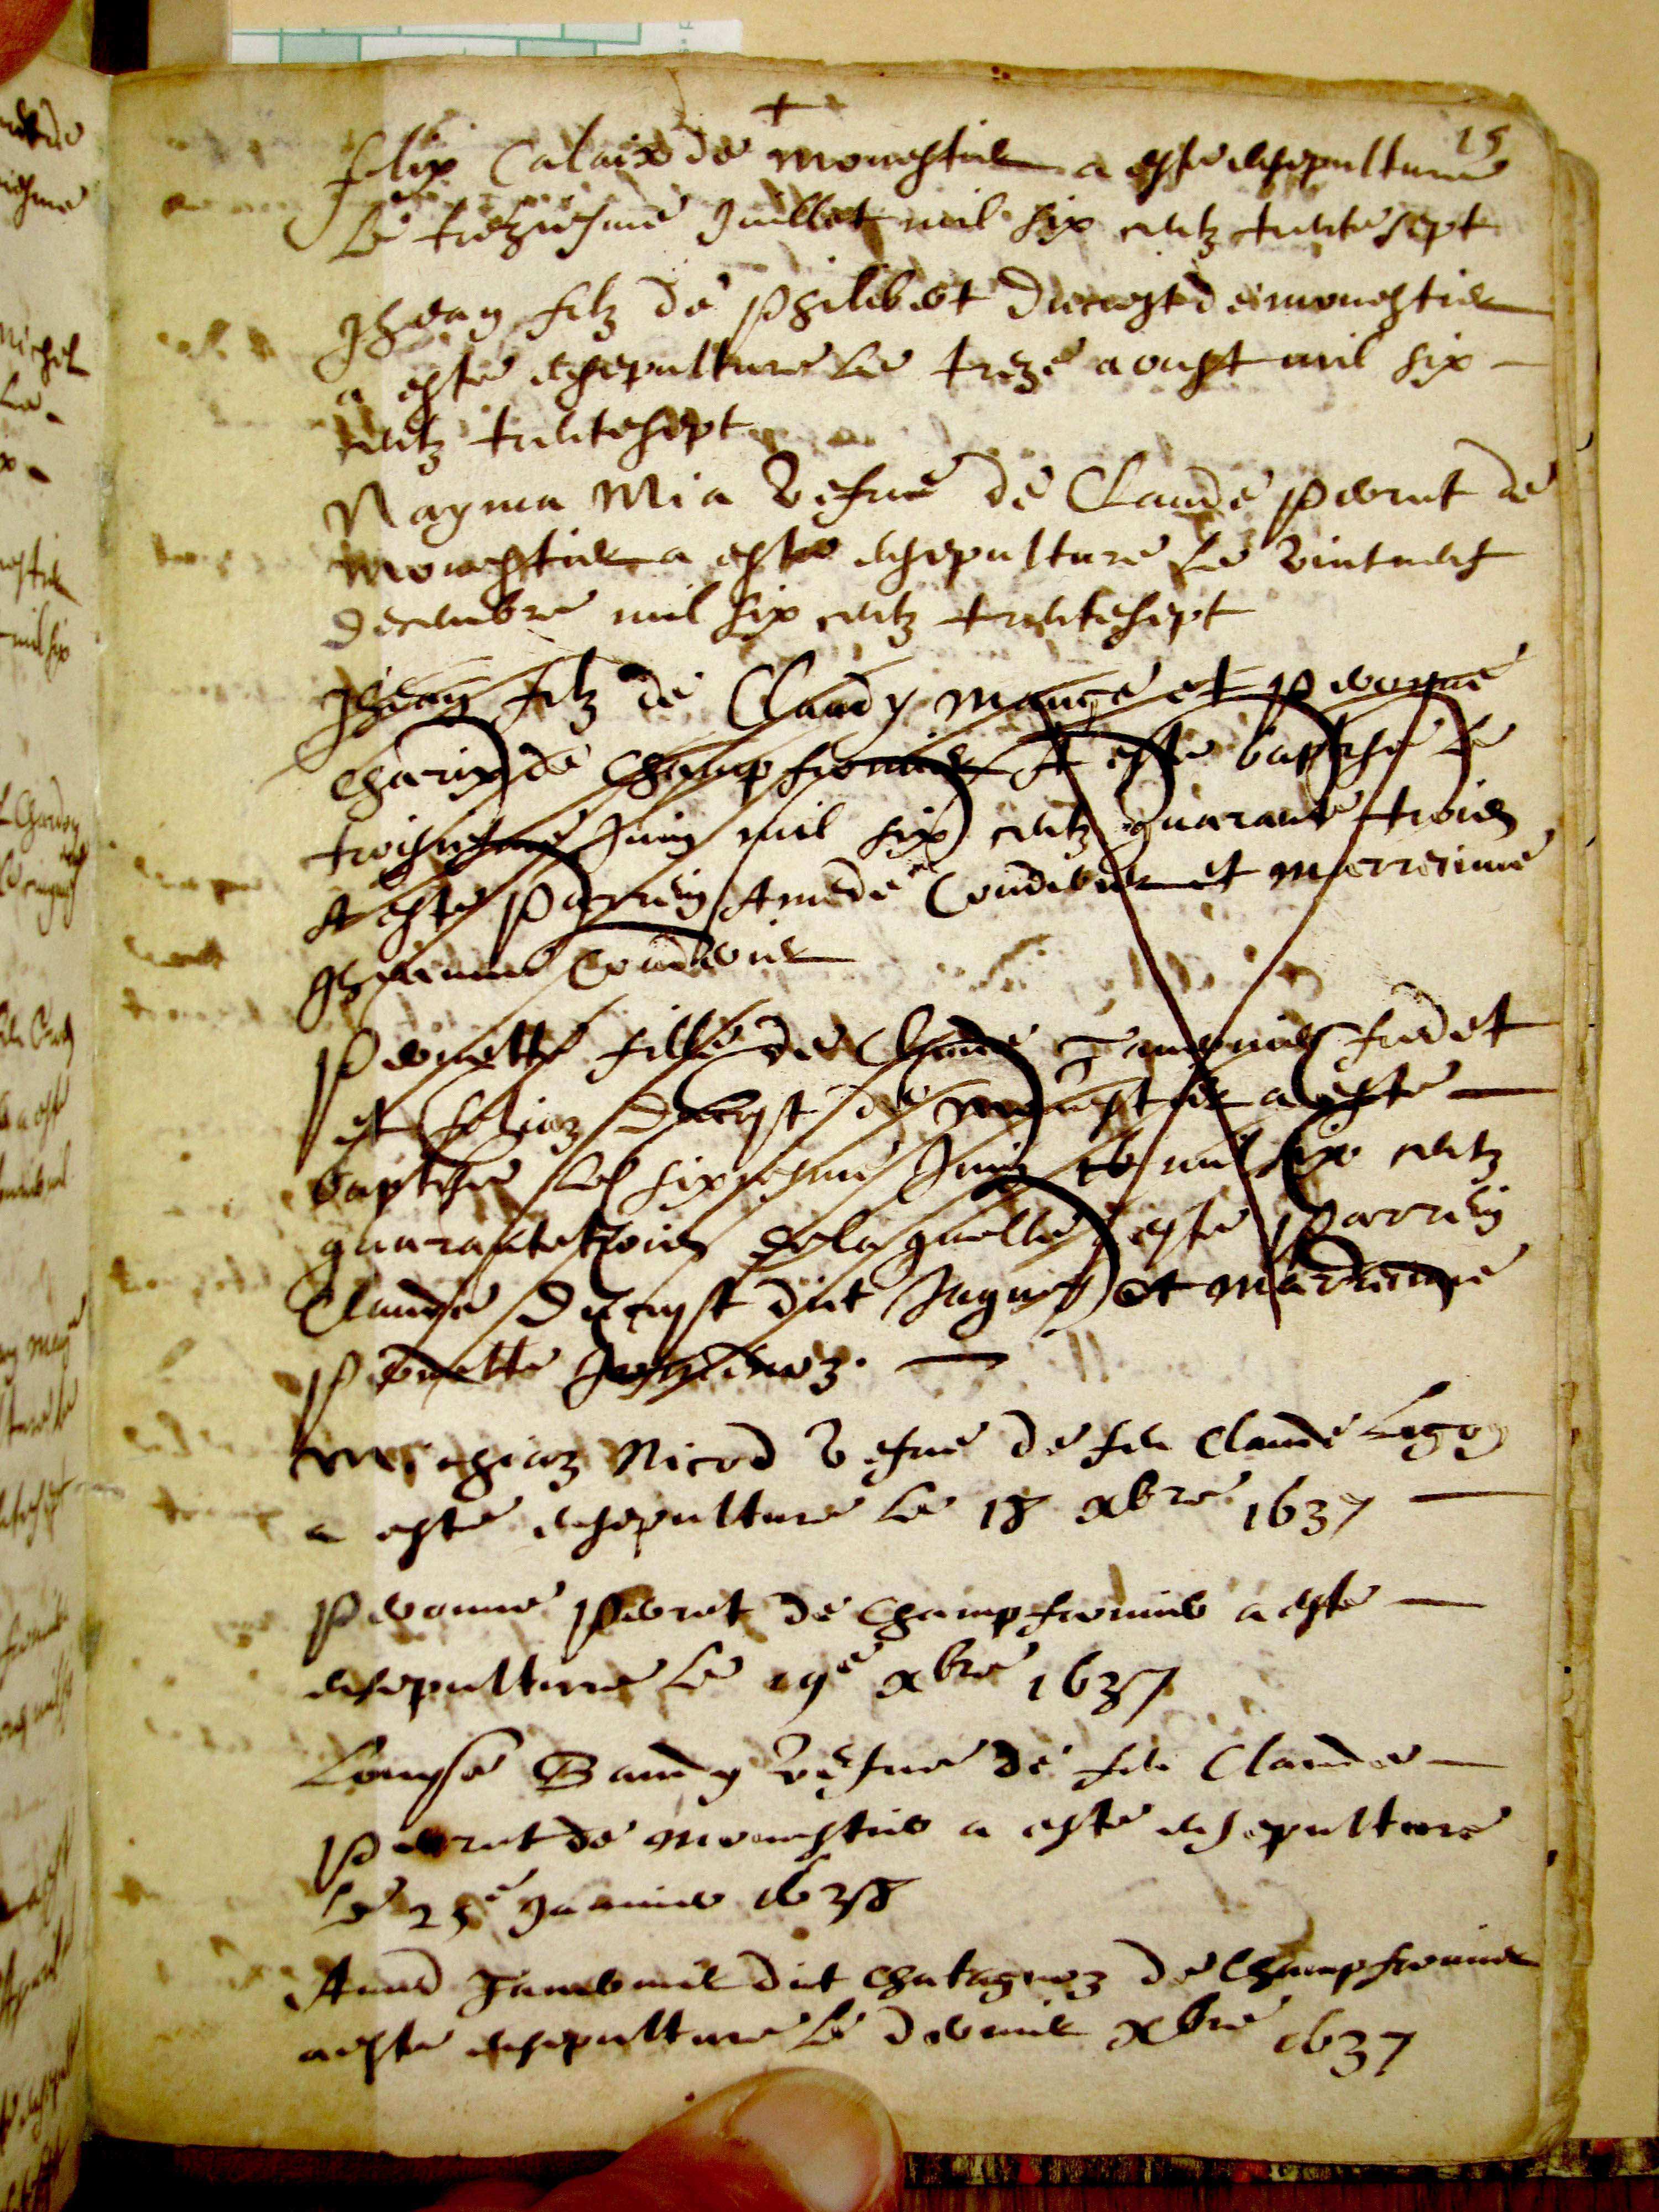 15
felix Calaix de monestier a este ensepulturé
Le treziesme Juillet mil six centz trentesept
Jhean filz de Philibert Ducrest de monestier
a este ensepulture Le treze aoust mil six
centz trentesept
Nayma Mia Vefue de Claude Perrut de
monestier a este ensepulture Le vint
Decembre mil six centz trentesept
Jhean filz de Claudy mange et Pernonne
Charix de Champfromier A este baptisé Le
troisiesme Juin mil six centz quarante troies
A este Parrein Amede Condevier et merreinne
Condevier
Pernette fille de Claude Tavernier
et Ducrest de monestier a este
baptisee Le sixiesme Juin mil six centz
quarantetroies de laquelle a este Parrein
Claude Ducrest dit Jaques et marreinne
Pernette
Michiaz Nicod Vefue de feu Claude
a este ensepulture Le 18 xbre 1637
Pernonne Perrut de Champfromier a este
ensepulture Le 19e xbre 1637
Louyse Baudy vefue de feu Claude
Perrut de monestier a este ensepulture
Le 25e Januier 1638
Amed Tavernier dit Chatagnoz de Champfromier
a este ensepulture Le dernier xbre 1637